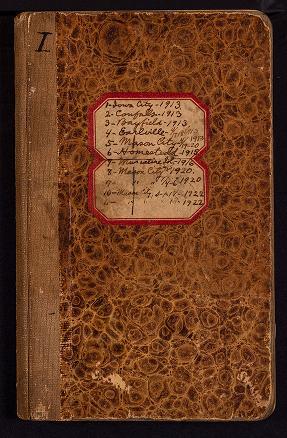 I
1-Iowa City-1913
2-Confals-1913
3-Bayfield-1913
4-Earlville-
5-Mason City-
6-Homestead-1915
7-Muscatine 1915
8-Mason City 1920.
9- " " 1920
10-Mason City, 1922
" 1922